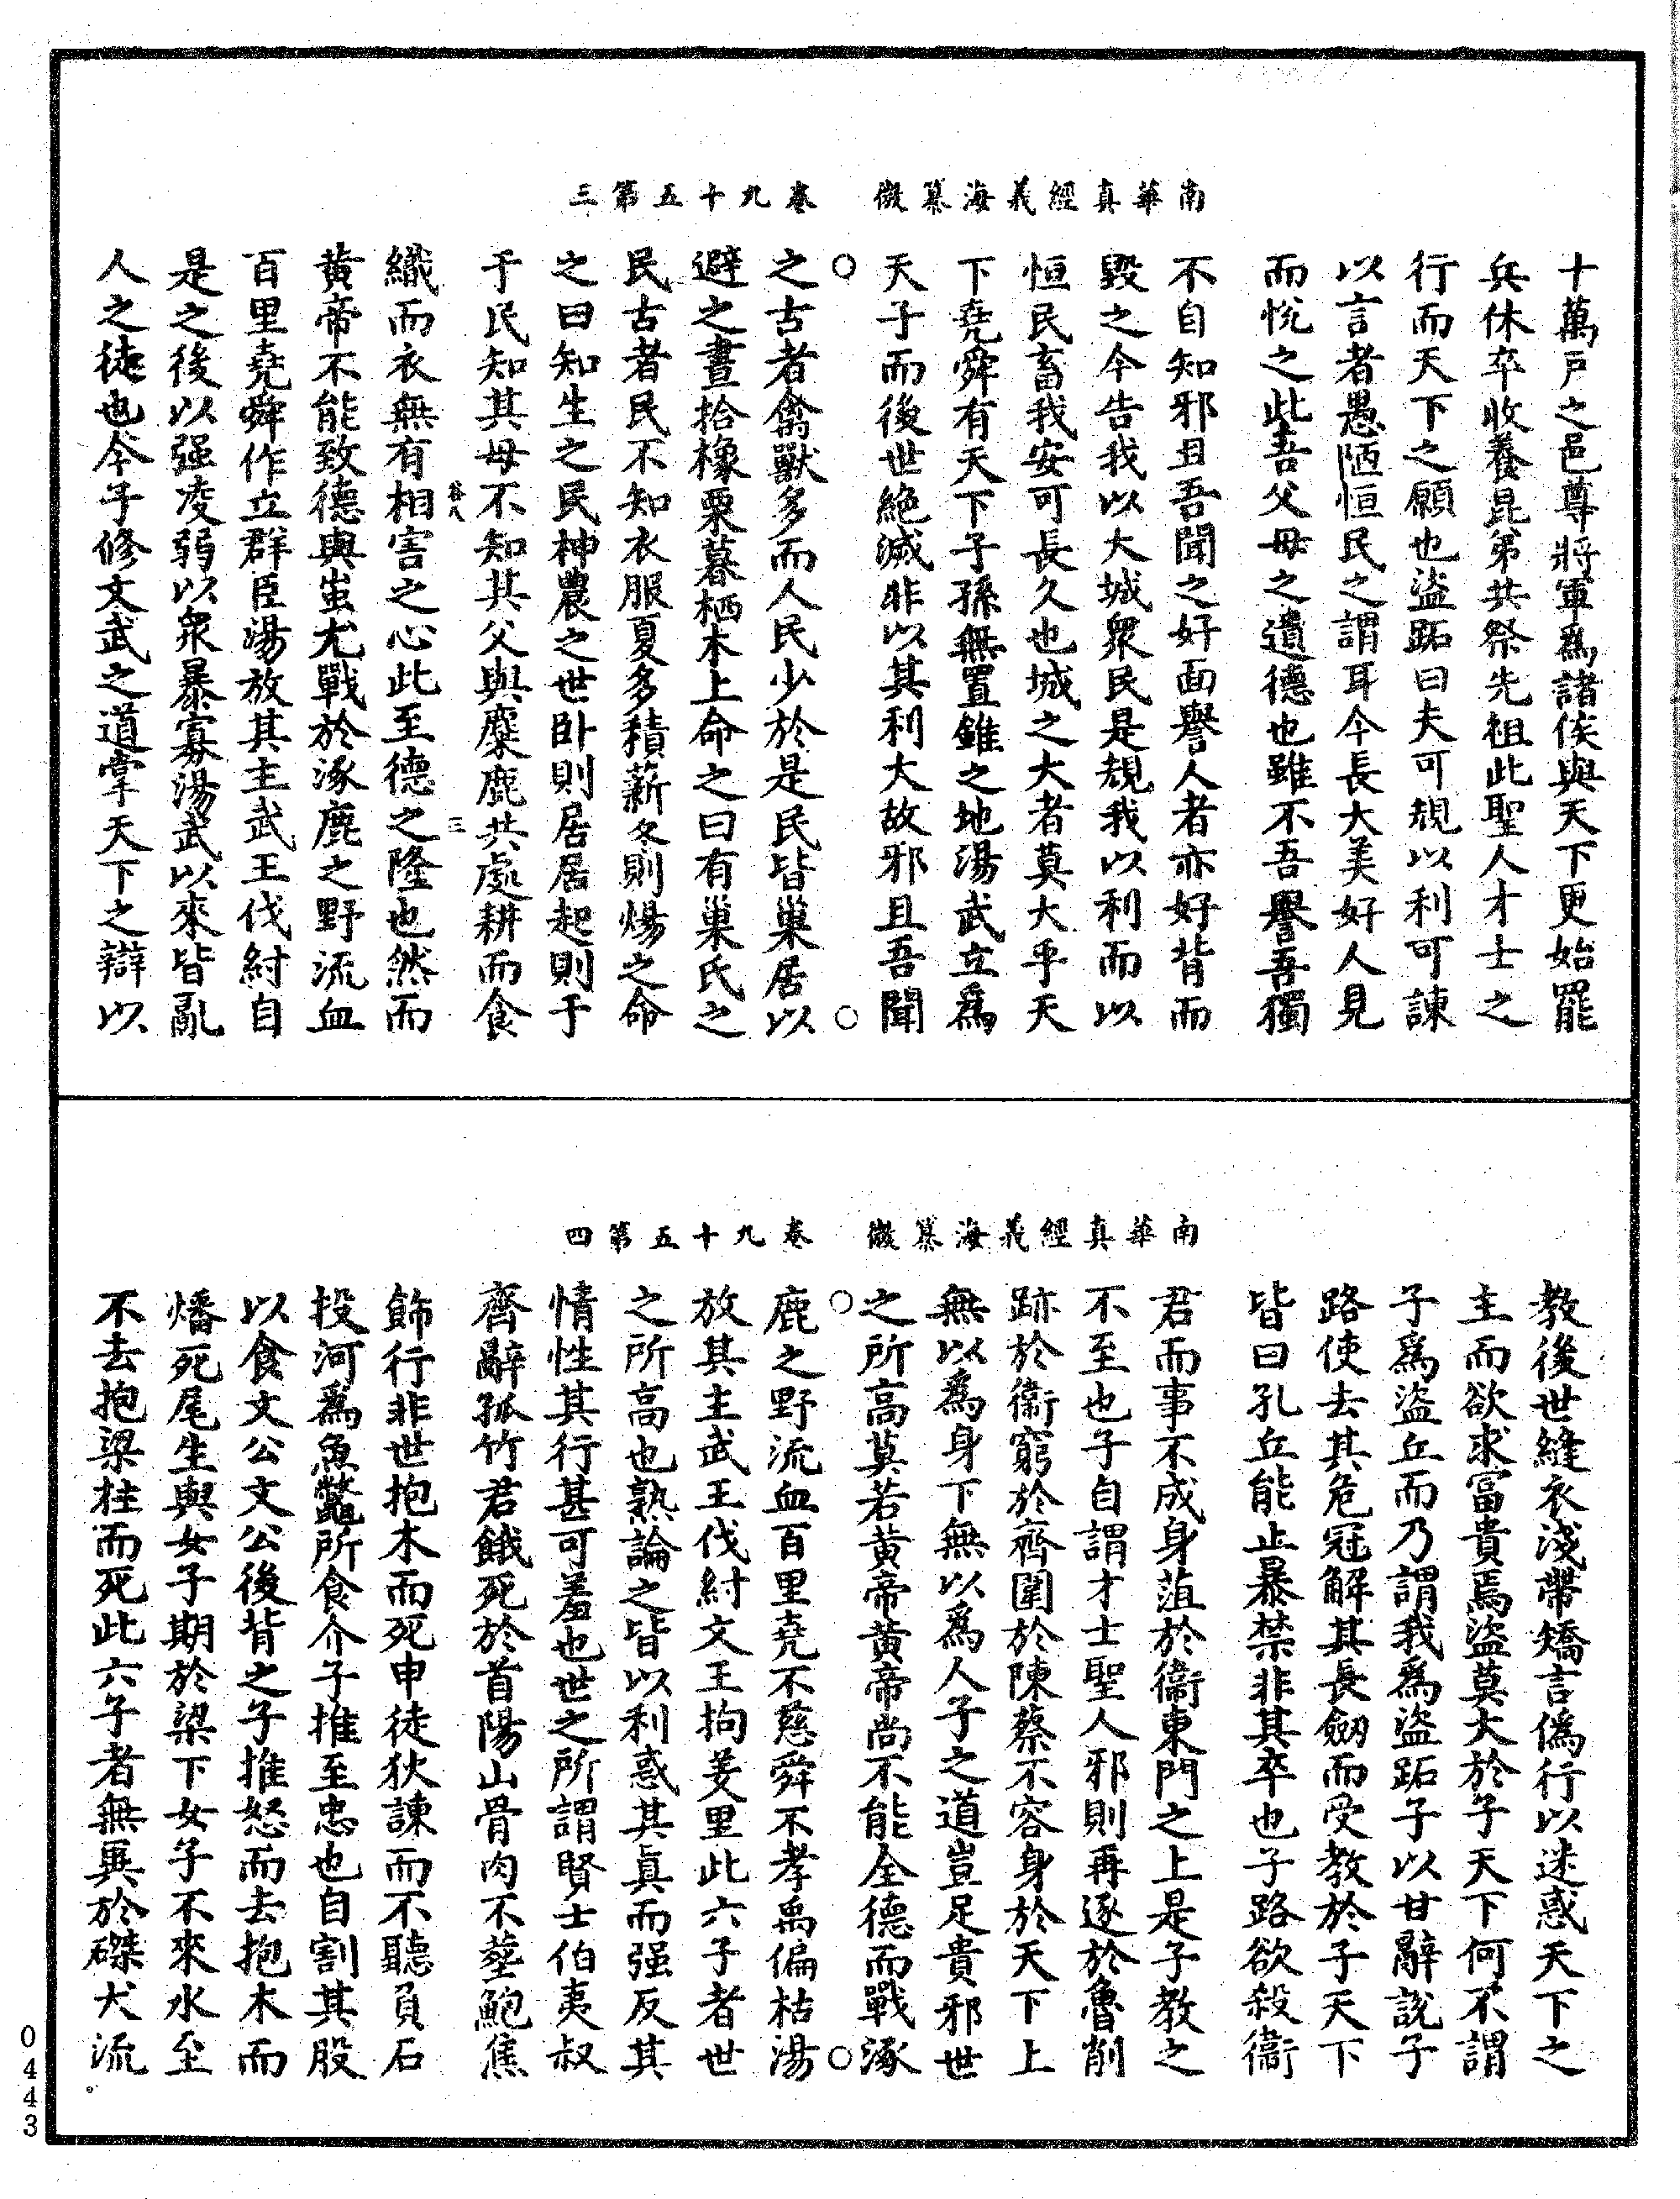 南華真經義海纂微　卷九十五第三
十萬戶之邑尊將軍爲諸侯與天下更始罷
兵休卒收養昆弟共祭先祖此聖人才士之
行而天下之願也盜跖曰夫可規以利可諫
以言者愚陋恒民之謂耳今長大美好人見
而悅之此吾父母之遺德也雖不吾譽吾獨
不自知邪且吾聞之好面譽人者亦好背而
毀之今告我以大城衆民是規我以利而以
恒民畜我安可長久也城之大者莫大乎天
下堯舜有天下子孫無置錐之地湯武立爲
天子而後世絶滅非以其利大故邪且吾聞
○　○
之古者禽獸多而人民少於是民皆巢居以
避之晝拾橡栗暮栖木上命之曰有巢氏之
民古者民不知衣服夏多積薪冬則煬之命
之曰知生之民神農之世卧則居居起則于
于民知其母不知其父與麋鹿共處耕而食
谷八　三
織而衣無有相害之心此至德之隆也然而
黄帝不能致德與蚩尤戰於涿鹿之野流血
百里堯舜作立群臣湯放其主武王伐紂自
是之後以强凌弱以衆暴寡湯武以來皆亂
人之徒也今子修文武之道掌天下之辯以
南華真經義海纂微　卷九十五第四
教後世縫衣淺帶矯言僞行以迷惑天下之
主而欲求富貴焉盜莫大於子天下何不謂
子爲盜丘而乃謂我爲盜跖子以甘辭説子
路使去其危冠解其長劒而受教於子天下
皆曰孔丘能止暴禁非其卒也子路欲殺衞
君而事不成身菹於衞東門之上是子教之
不至也子自謂才士聖人邪則再逐於魯削
跡於衞窮於齊圍於陳蔡不容身於天下上
無以爲身下無以爲人子之道豈足貴邪世
之所高莫若黄帝黄帝尚不能全德而戰涿
○　○
鹿之野流血百里堯不慈舜不孝禹偏枯湯
放其主武王伐紂文王拘羑里此六子者世
之所高也熟論之皆以利惑其真而强反其
情性其行甚可羞也世之所謂賢士伯夷叔
齊辭孤竹君餓死於首陽山骨肉不葬鮑焦
飾行非世抱木而死申徒狄諫而不聽負石
投河爲魚鼈所食介子推至忠也自割其股
以食文公文公後背之子推怒而去抱木而
燔死尾生與女子期於梁下女子不來水至
不去抱梁柱而死此六子者無異於磔犬流
0443